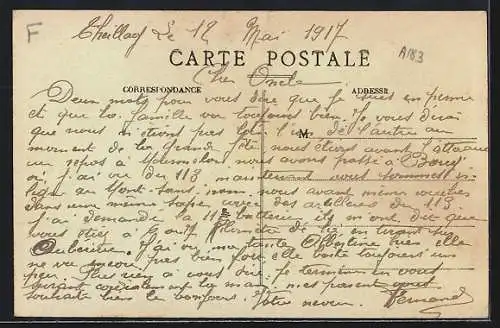 F
Theillay Le 12 Mai 1917
A183
CARTE POSTALE
Cher Oncle
CORRESPONDANCE ADRESSE
Deux mots pour vous dire que je suis en perme
et que la famille va toujours bien Je vous dirai
que nous n'etions pas loin l'un de l'autre au
M
moment de la grande fête nous étions avant l'attaque
au repos à Mourmelon nous avons passé à Bouy
où j'ai vu du 113 maintenant nous sommes en
ligne au Mont-sans-nom nous avons même
dans une même sape avec des artilleurs du 113
j'ai demandé la 11e batterie ils m'ont dit que
vous étiez à
Auberive J'ai vu ma tante Albertine hier elle
ne va encore pas bien fort elle reste toujours un
peu Plus rien à vous dire Je termine en vous
serrant cordialement la main
souhaite bien le bonjour Votre neveu Fernand